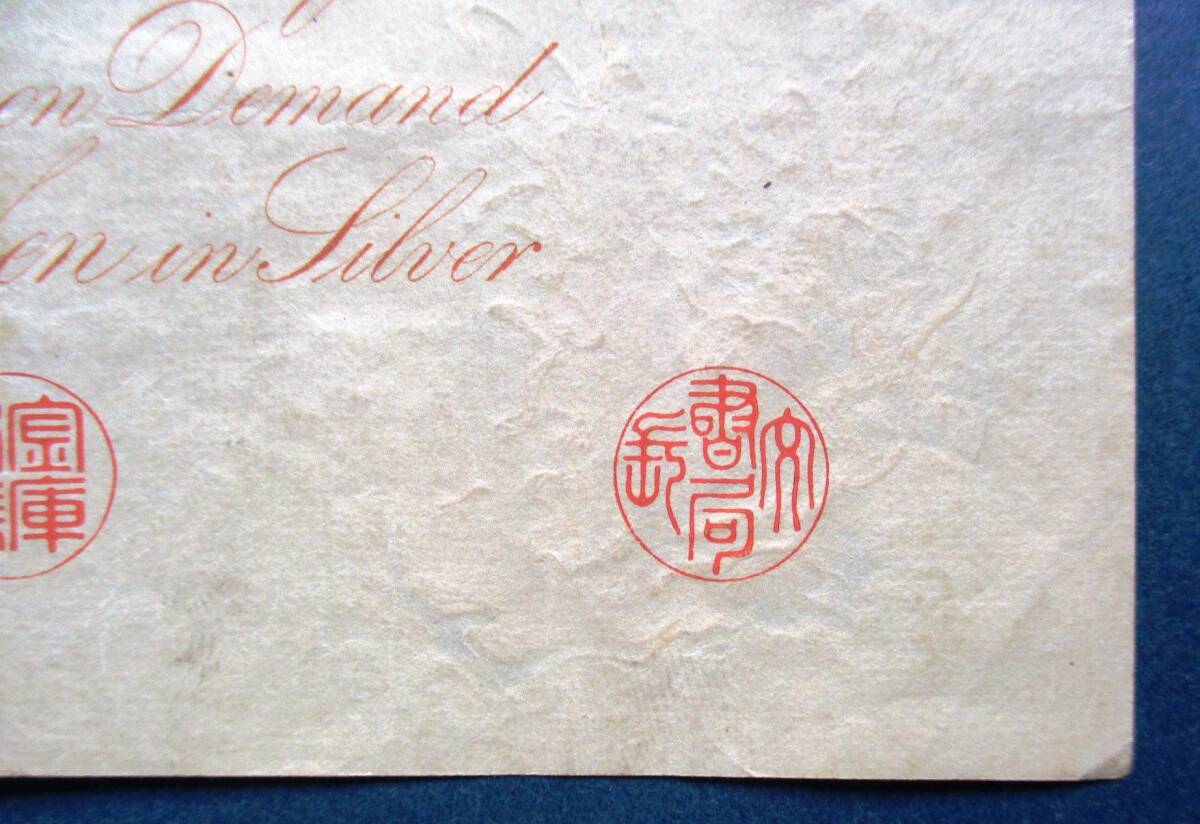 on Demand
en in Silver
金庫
文書局長